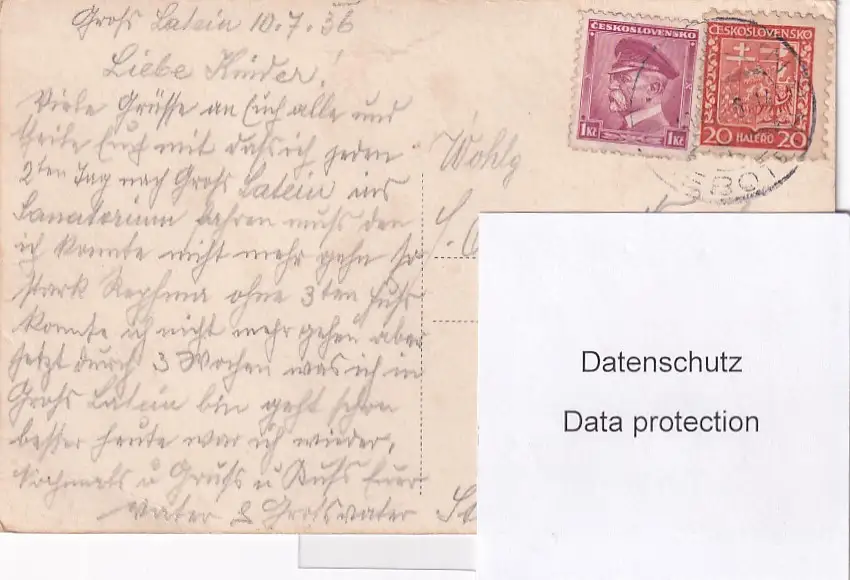 Groß Latein 10.7.36
Liebe Kinder!
Viele Grüsse an Euch alle und
teile Euch mit daß ich jeden
2ten Tag nach Groß Latein ins
Sanatorium fahren muß den
ich konnte nicht mehr gehn so
stark Rephma ohne 3ten Fuß
konnte ich nicht mehr gehen aber
jetzt durch 3 Wochen was ich in
Groß Latein bin geht schon
besser heute war ich wieder,
Nochmals u Gruß u Kuß Euer
Vater & Großvater
Wohlg
ČESKOSLOVENSKO
1Kč 1Kč
ČESKOSLOVENSKO
20 HALÉŘŮ 20
Datenschutz
Data protection